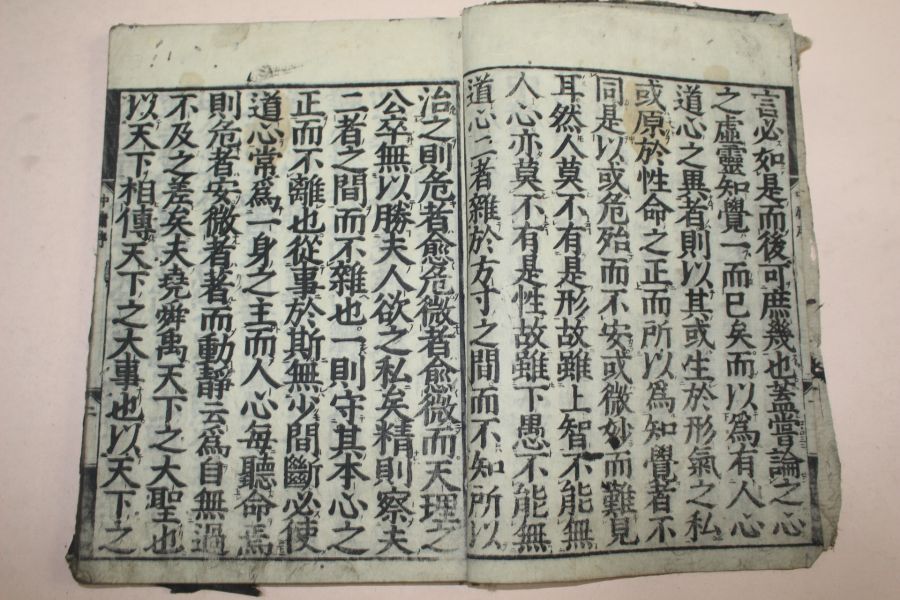 言必如是而後可庶幾也蓋嘗論之心
之虛靈知覺一而已矣而以爲有人心
道心之異者則以其或生於形氣之私
或原於性命之正而所以爲知覺者不
同是以或危殆而不安或微妙而難見
耳然人莫不有是形故雖上智不能無
人心亦莫不有是性故雖下愚不能無
道心二者雜於方寸之間而不知所以
治之則危者愈危微者愈微而天理之
公卒無以勝夫人欲之私矣精則察夫
二者之間而不雜也一則守其本心之
正而不離也從事於斯無少間斷必使
道心常爲一身之主而人心每聽命焉
則危者安微者著而動靜云爲自無過
不及之差矣夫堯舜禹天下之大聖也
以天下相傳天下之大事也以天下之